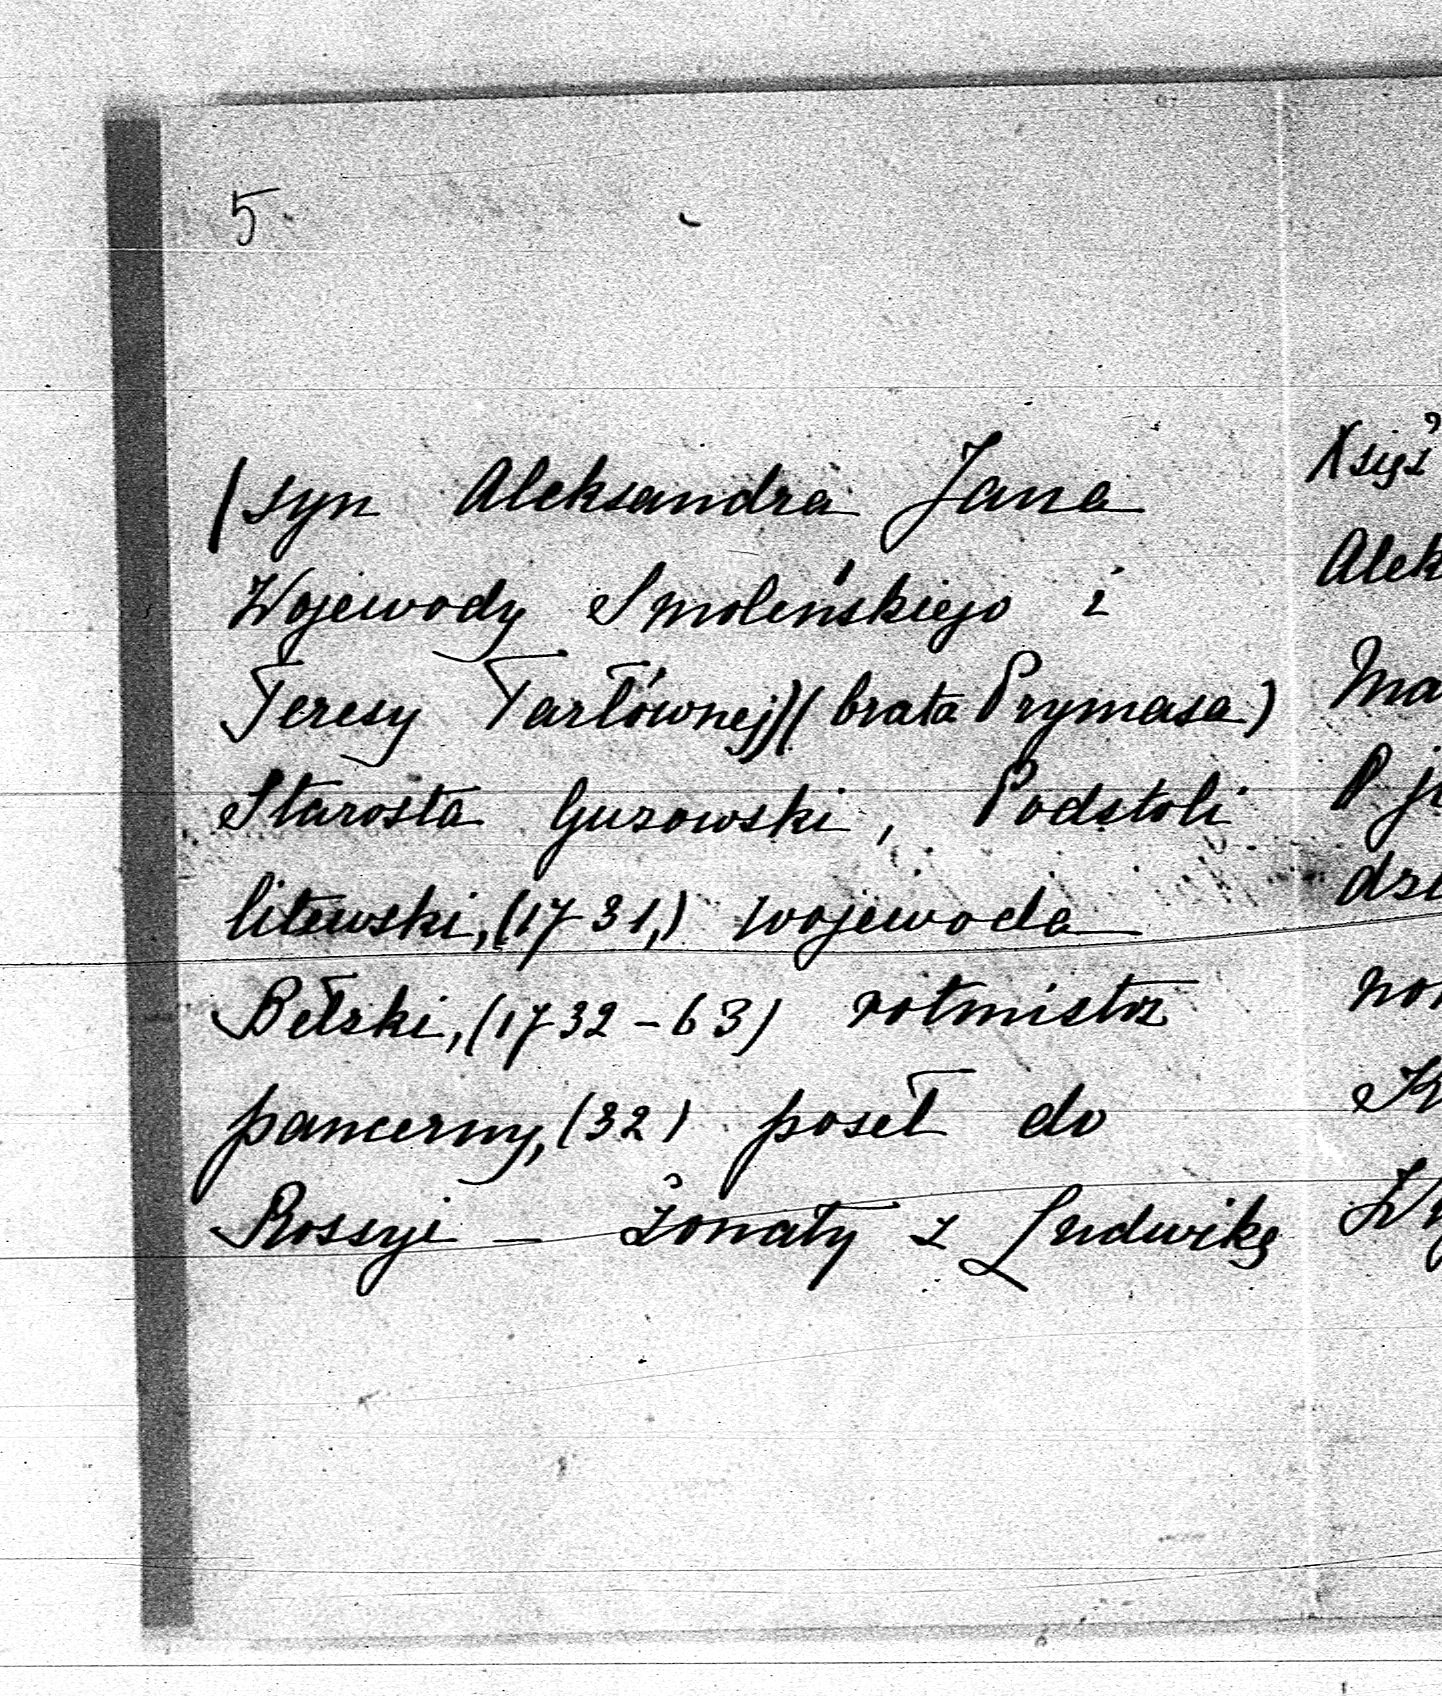 5.
(syn Aleksandra Jana
Wojewody Smoleńskiego i
Teresy Tarłównej)(brata Prymasa)
Starosta Guzowski, Podstoli
litewski, (1731,) wojewoda
Bełzki, (1732-63) rotmistrz
pancerny, (32) poseł do
Rossyi - żonaty z Ludwiką
Księż
Alek
Ma
P je
dzi